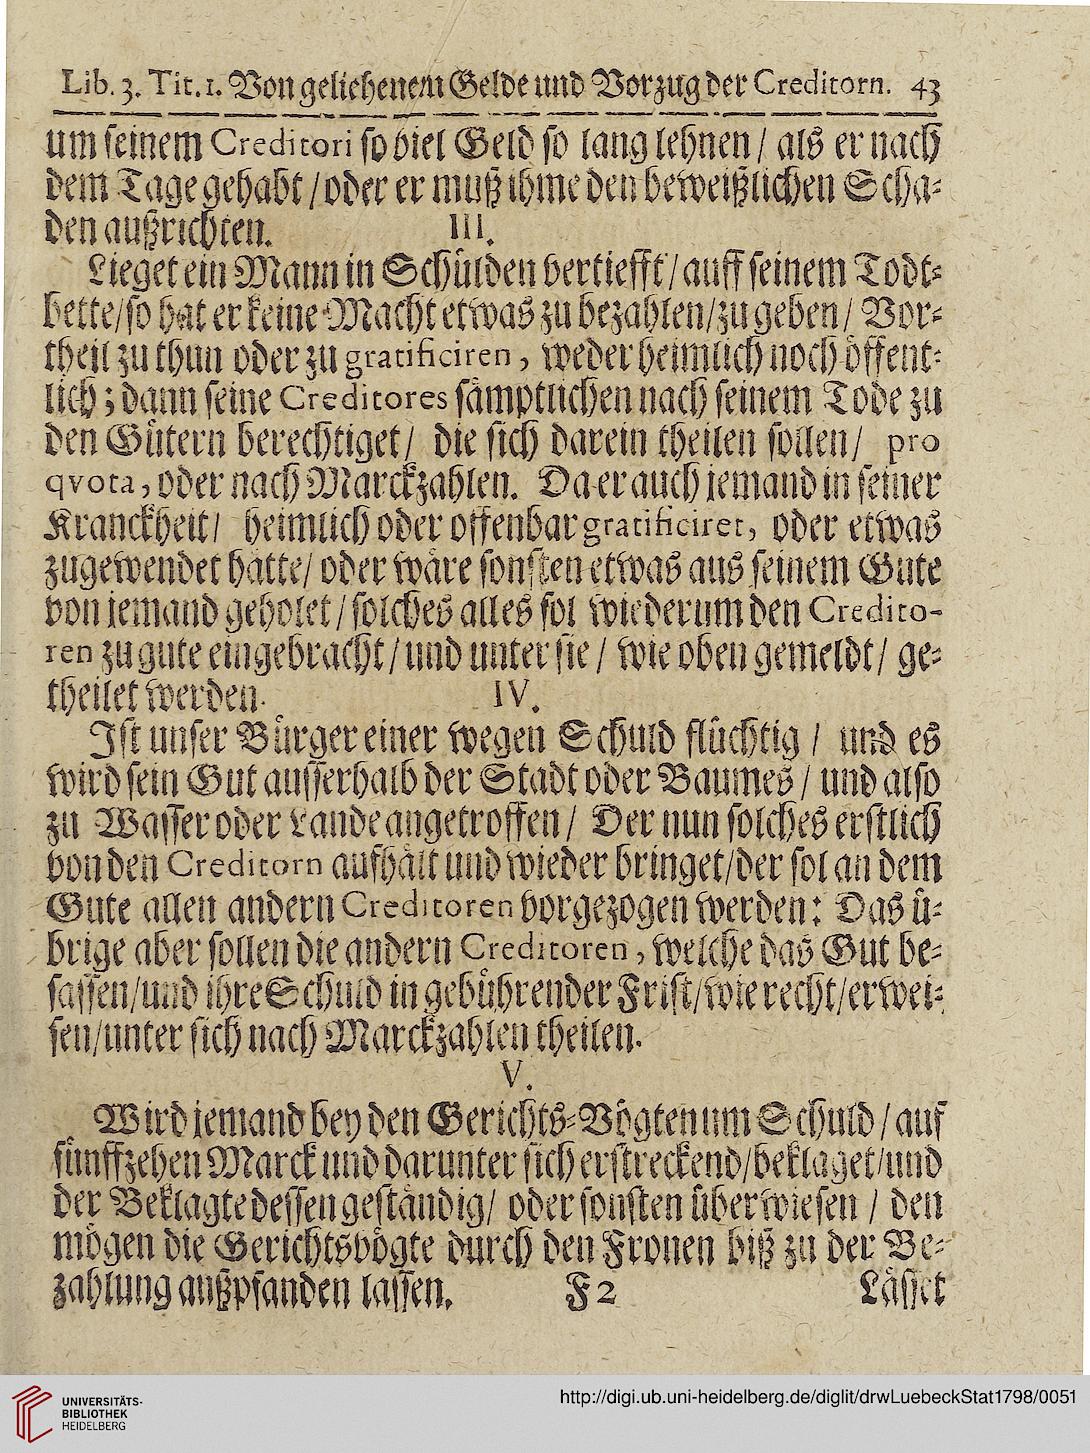 Lib. 3. Tit. 1. Von geliehenem Gelde und Vorzug der Creditorn. 43
um seinem Creditori so viel Geld so lang lehnen / als er nach
dem Tage gehabt / oder er muß ihme den beweißlichen Scha-
den außrichten. III.
Lieget ein Mann in Schůlden vertiefft / auff seinem Todt-
bette/ so hat er keine Macht etwas zu bezahlen/ zu geben / Vor-
theil zu thun oder zu gratificiren, weder heimlich noch öffent-
lich; dann seine Creditores sämptlichen nach seinem Tode zu
den Gůtern berechtiget / die sich darein theilen sollen / pro
qvota, oder nach Marckzahlen. Da er auch jemand in seiner
Kranckheit / heimlich oder offenbar gratificiret, oder etwas
zugewendet hätte/ oder wäre sonsten etwas aus seinem Gute
von jemand geholet / solches alles sol wiederum den Credito-
ren zu gute eingebracht / und unter sie / wie oben gemeldt / ge-
theilet werden. IV.
Ist unser Bůrger einer wegen Schuld flůchtig / und es
wird sein Gut ausserhalb der Stadt oder Baumes / und also
zu Wasser oder Lande angetroffen / Der nun solches erstlich
von den Creditorn aufhält und wieder bringet/ der sol an dem
Gute allen andern Creditoren vorgezogen werden: Das ů-
brige aber sollen die andern Creditoren, welche das Gut be-
sassen/ und ihre Schuld in gebůhrender Frist/ wie recht/ erwei-
sen/ unter sich nach Marckzahlen theilen.
V.
Wird jemand bey den Gerichts-Vögten um Schuld / auf
fůnffzehen Marck und darunter sich erstreckend/ beklaget/ und
der Beklagte dessen geständig/ oder sonsten ůberwiesen / den
mögen die Gerichtsvögte durch den Fronen biß zu der Be-
zahlung außpfanden lassen. F 2 Lässet
UNIVERSITÄTS-
BIBLIOTHEK
HEIDELBERG
http://digi.ub.uni-heidelberg.de/diglit/drwLuebeckStat1798/0051